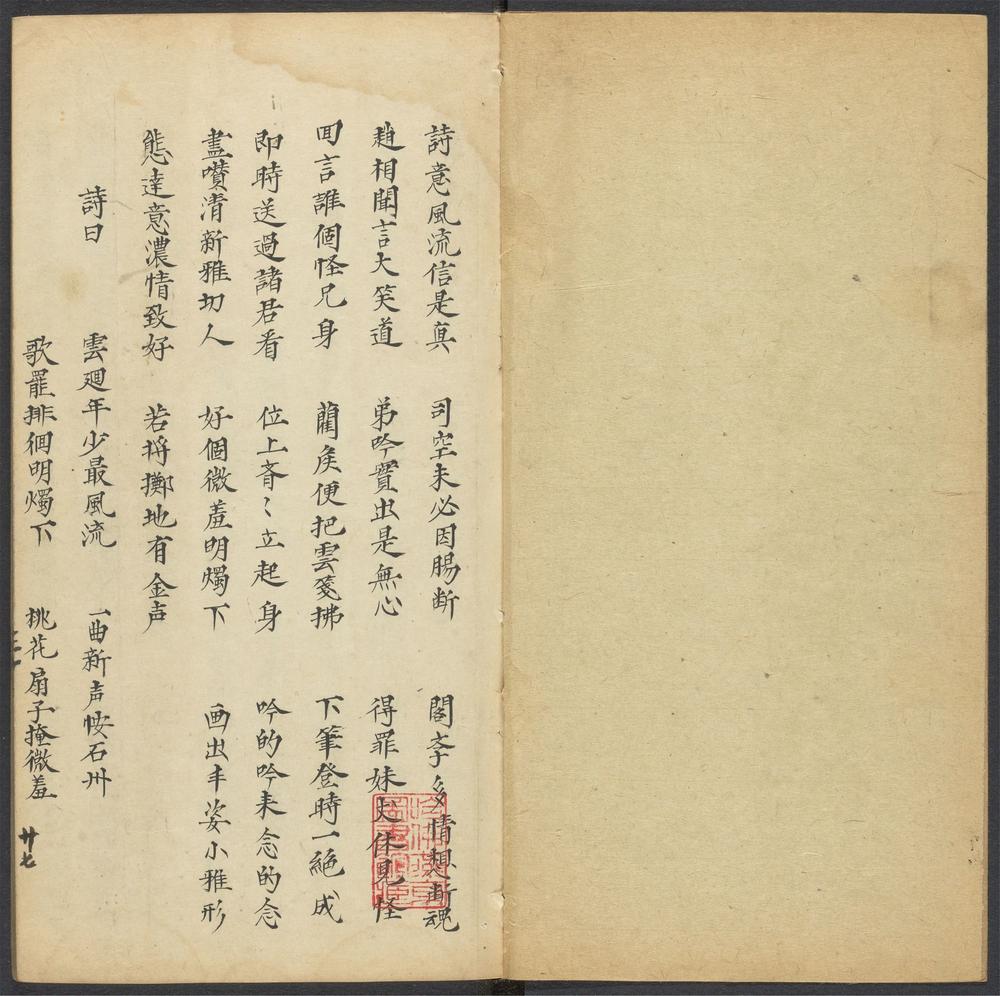 詩意風流信是真　司空未必因腸斷　閣李多情想断魂
趙相聞言大笑道　弟吟實出是無心　得罪妹丈休見怪
囬言誰個怪兄身　藺矦便把雲箋拂　下筆登時一絕成
即時送過諸君看　位上斉〻立起身　吟的吟来念的念
盡囋清新雅切人　好個微羞明燭下　画出丰姿小雅形
態達意濃情致好　若将擲地有金声
詩曰　雲廻年少最風流　一曲新声按石州
歌罷排徊明燭下　桃花扇子掩微羞
廿七